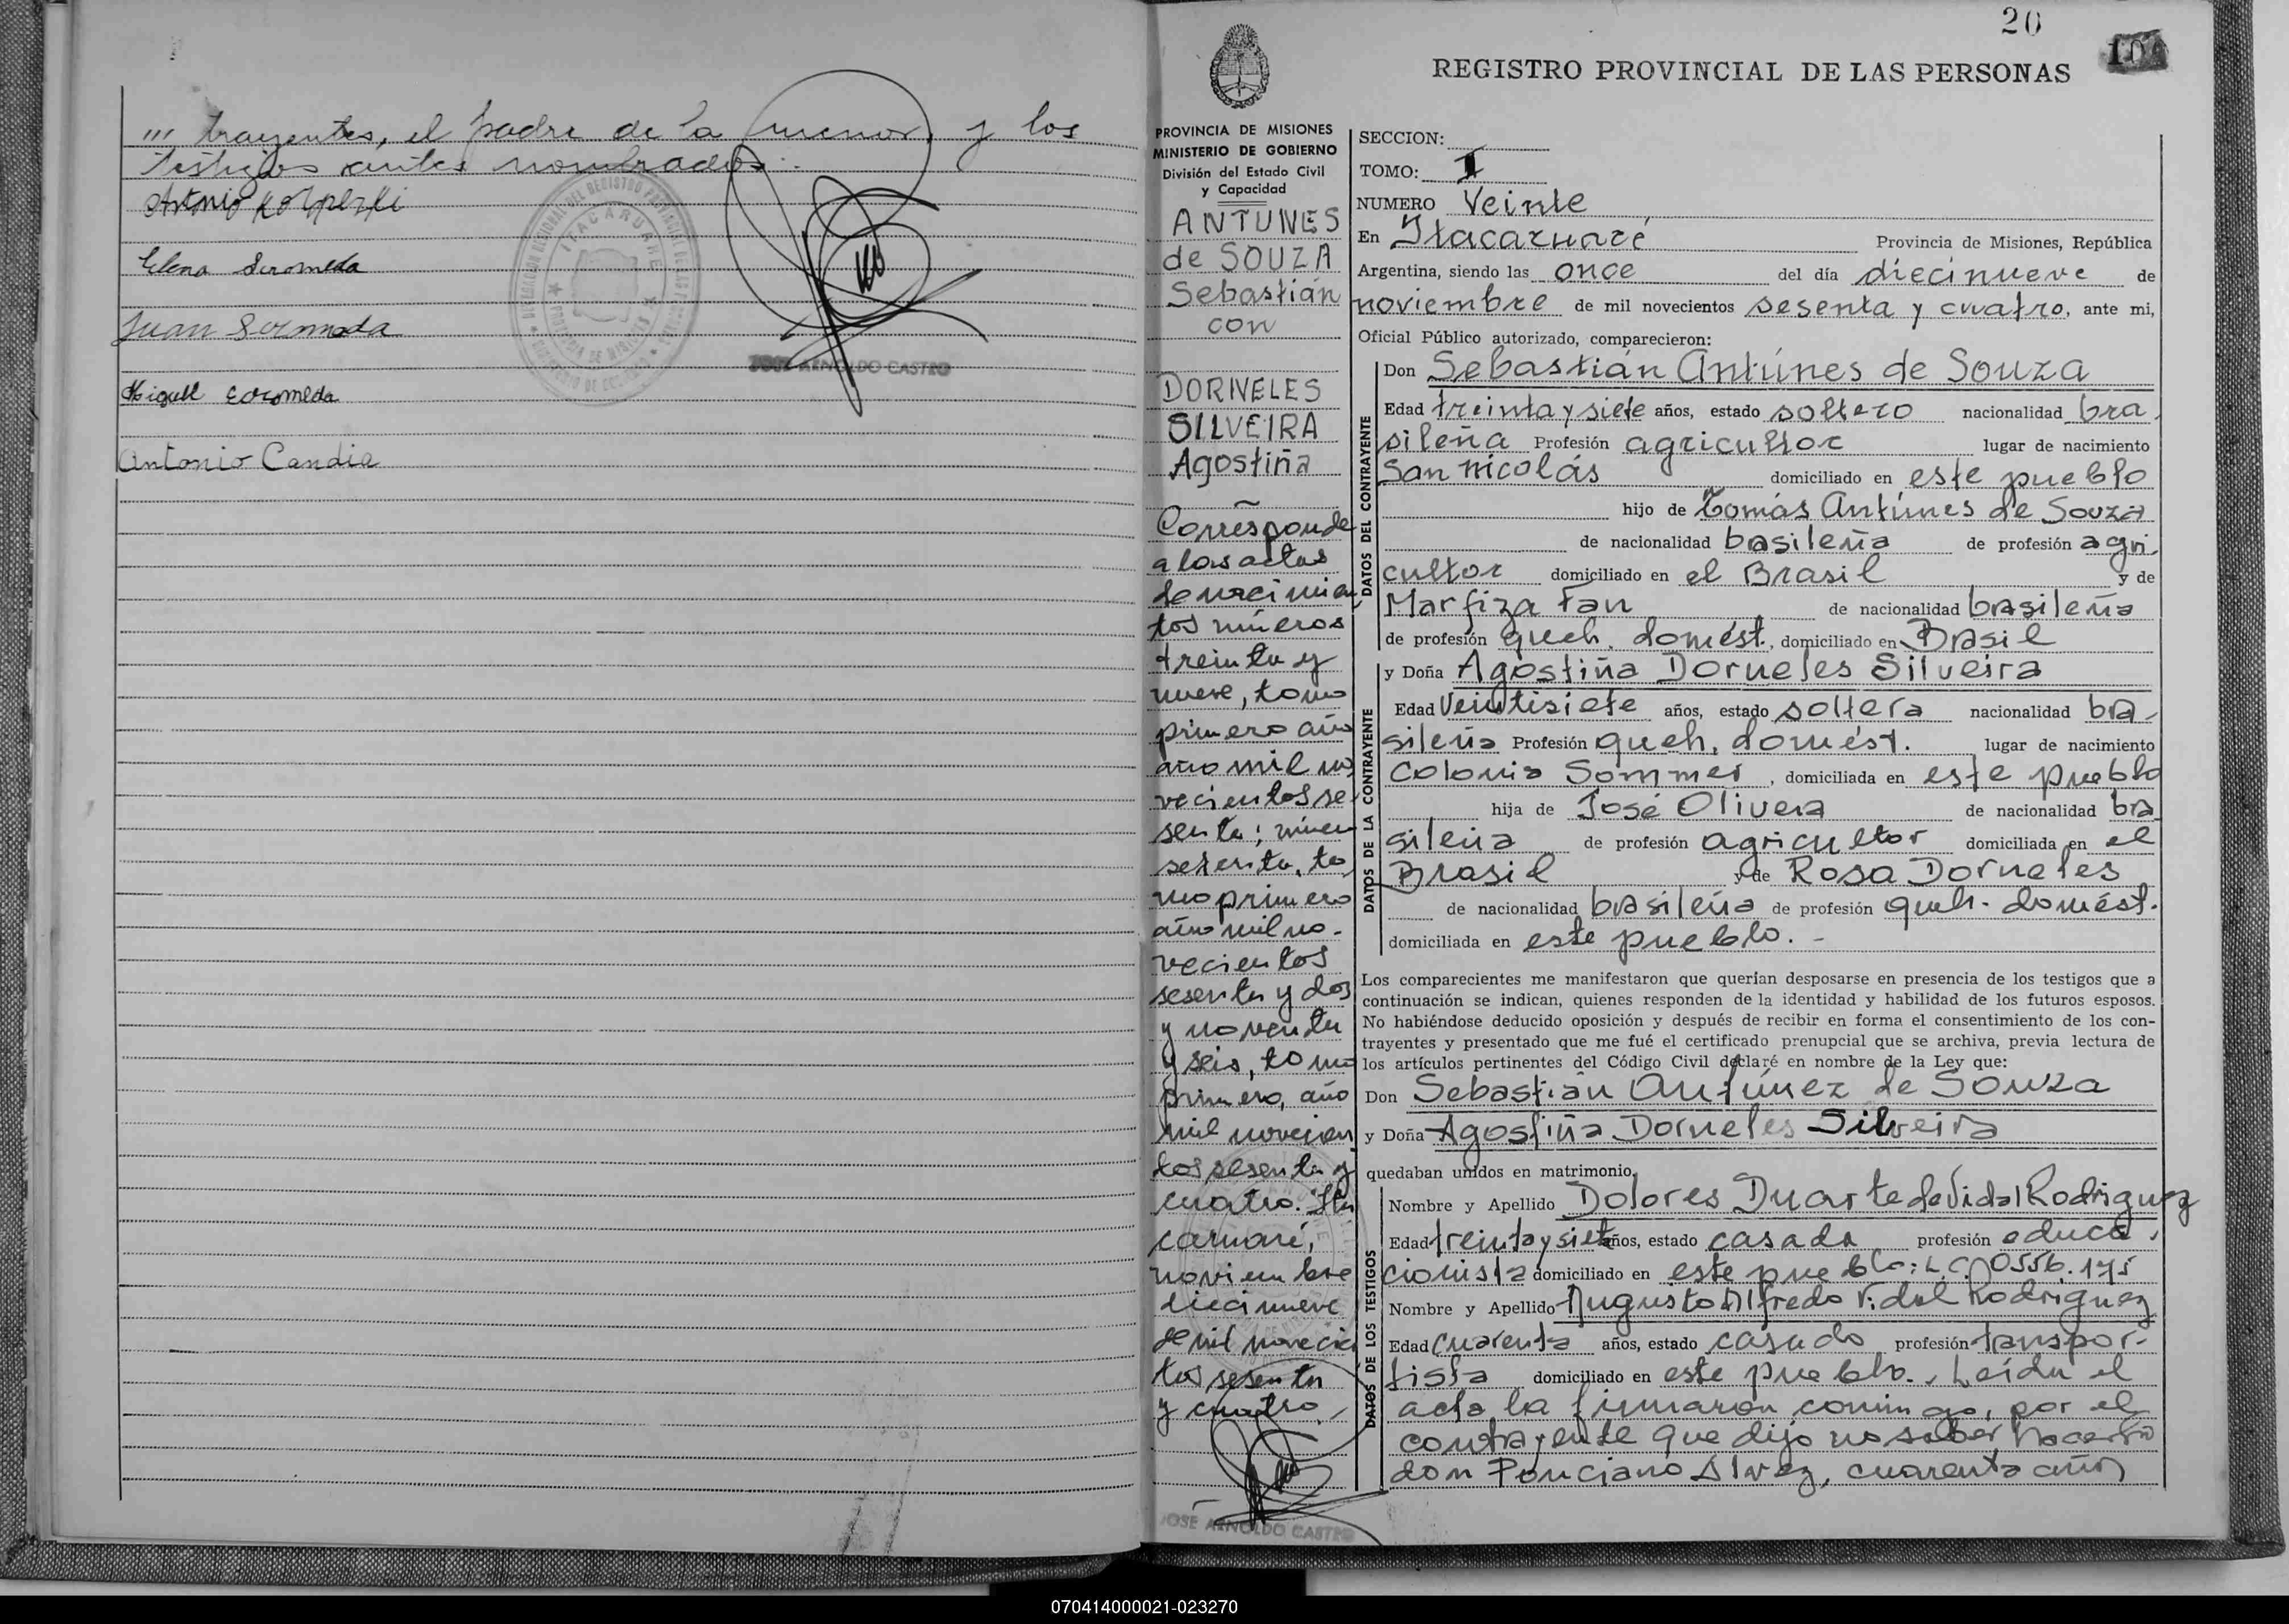 ''' trayentes, el padre de la menor, y los
testigos antes nombrados.
Antonio Kolperki
Elena Seromeda
Juan Seromeda
JOSE ARNOLDO CASTRO
Miguel Seromeda
Antonio Candia
20
REGISTRO PROVINCIAL DE LAS PERSONAS
PROVINCIA DE MISIONES
MINISTERIO DE GOBIERNO
División del Estado Civil
y Capacidad
ANTUNES
de SOUZA
Sebastián
con
DORNELES
SILVEIRA
Agostiña
Corresponde
a las actas
de nacimien
tos números
treinta y
nueve, tomo
primero año
año mil no
vecientos se
senta; número
sesenta, to
mo primero
año mil no-
vecientos
sesenta y dos
y noventa
y seis, tomo
primero, año
mil novecien
tos sesenta y
cuatro. Ita
caruaré,
noviembre
diecinueve
de mil novecien
tos sesenta
y cuatro.
JOSE ARNOLDO CASTRO
SECCION:
TOMO: I
NUMERO Veinte
En Itacaruaré Provincia de Misiones, República
Argentina, siendo las once del día diecinueve de
noviembre de mil novecientos sesenta y cuatro, ante mi,
Oficial Público autorizado, comparecieron:
DATOS DEL CONTRAYENTE
Don Sebastián Antúnes de Souza
Edad treinta y siete años, estado soltero nacionalidad bra
sileña Profesión agricultor lugar de nacimiento
San Nicolás domiciliado en este pueblo
hijo de Tomás Antúnes de Souza
de nacionalidad basileña de profesión agri
cultor domiciliado en el Brasil y de
Marfiza Fan de nacionalidad brasileña
de profesión queh. domést., domiciliado en Brasil
DATOS DE LA CONTRAYENTE
y Doña Agostiña Dorneles Silveira
Edad Veintisiete años, estado soltera nacionalidad bra-
sileña Profesión queh. domést. lugar de nacimiento
Colonia Sommer, domiciliada en este pueblo
hija de José Olivera de nacionalidad bra
sileña de profesión agricultor domiciliada en el
Brasil y de Rosa Dorneles
de nacionalidad brasileña de profesión queh. domést.
domiciliada en este pueblo. -
Los comparecientes me manifestaron que querían desposarse en presencia de los testigos que a
continuación se indican, quienes responden de la identidad y habilidad de los futuros esposos.
No habiéndose deducido oposición y después de recibir en forma el consentimiento de los con-
trayentes y presentado que me fué el certificado prenupcial que se archiva, previa lectura de
los artículos pertinentes del Código Civil declaré en nombre de la Ley que:
Don Sebastián Antúnez de Souza
y Doña Agostiña Dorneles Silveira
quedaban unidos en matrimonio.
DATOS DE LOS TESTIGOS
Nombre y Apellido Dolores Duarte de Vidal Rodriguez
Edad treinta y siete años, estado casada profesión educa
cionista domiciliado en este pueblo: L.C. 0556.195
Nombre y Apellido Augusto Alfredo Vidal Rodriguez
Edad cuarenta años, estado casado profesión transpor-
tista domiciliado en este pueblo. Leída el
acta la firmaron conmigo, por el
contrayente que dijo no saber hacerlo
don Ponciano Alvez, cuarenta años
070414000021-023270